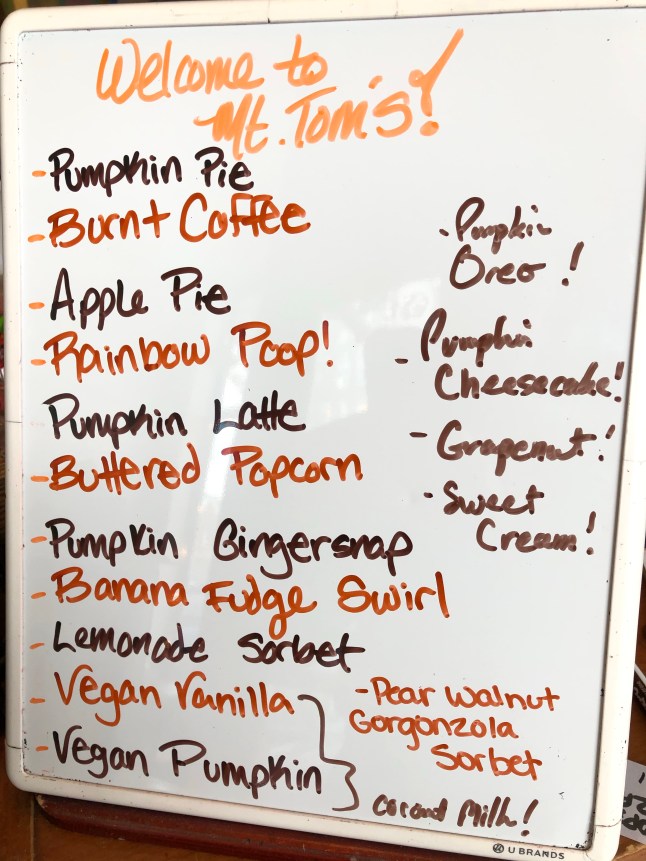 Welcome to
Mt. Tom's!
- Pumpkin Pie
- Burnt Coffee
- Apple Pie
- Rainbow Poop!
Pumpkin Latte
- Buttered Popcorn
- Pumpkin Gingersnap
- Banana Fudge Swirl
- Lemonade Sorbet
- Vegan Vanilla
- Vegan Pumpkin
- Pumpkin
Oreo!
- Pumpkin
Cheesecake!
- Grapenut!
- Sweet
Cream!
- Pear Walnut
Gorgonzola
Sorbet
Milk!
U BRANDS